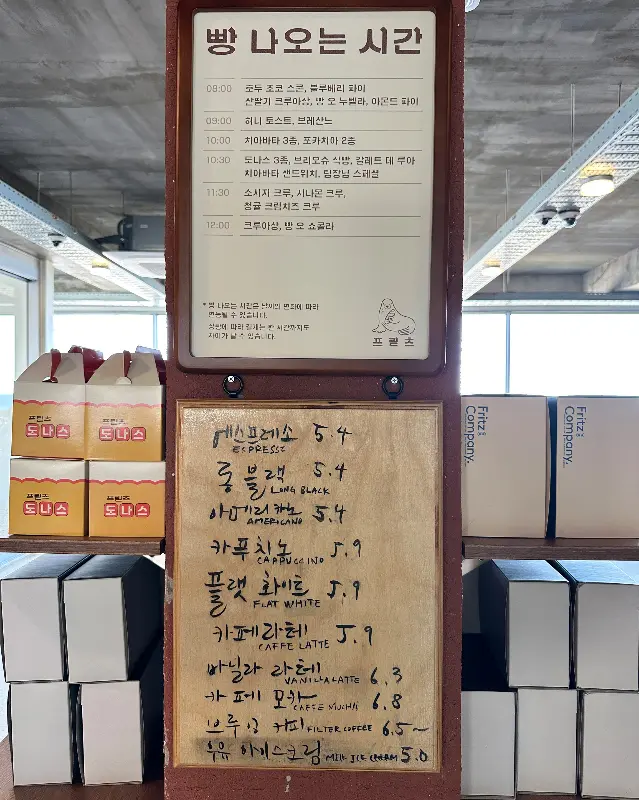 빵 나오는 시간
08:00 호두 초코 스콘, 블루베리 파이
산딸기 크루아상, 빵 오 누텔라, 아몬드 파이
09:00 허니 토스트, 브레산느
10:00 치아바타 3종, 포카치아 2종
10:30 도나스 3종, 브리오슈 식빵, 갈레트 데 루아
치아바타 샌드위치, 팀장님 스페셜
11:30 소시지 크루, 시나몬 크루,
청귤 크림치즈 크루
12:00 크루아상, 빵 오 쇼콜라
* 빵 나오는 시간은 날씨의 변화에 따라
변동될 수 있습니다.
상황에 따라 길게는 한 시간까지도
차이가 날 수 있습니다.
프릳츠
에스프레소 5.4
ESPRESSO
롱 블랙 5.4
LONG BLACK
아메리카노 5.4
AMERICANO
카푸치노 5.9
CAPPUCCINO
플랫 화이트 5.9
FLAT WHITE
카페라떼 5.9
CAFFE LATTE
바닐라 라떼 VANILLA LATTE 6.3
카페 모카 CAFFE MOCHA 6.8
브루잉 커피 FILTER COFFEE 6.5~
우유 아이스크림 MILK ICE CREAM 5.0
프릳츠
도나스
프릳츠
도나스
프릳츠
도나스
프릳츠
도나스
Fritz
Company.
Fritz
Company.